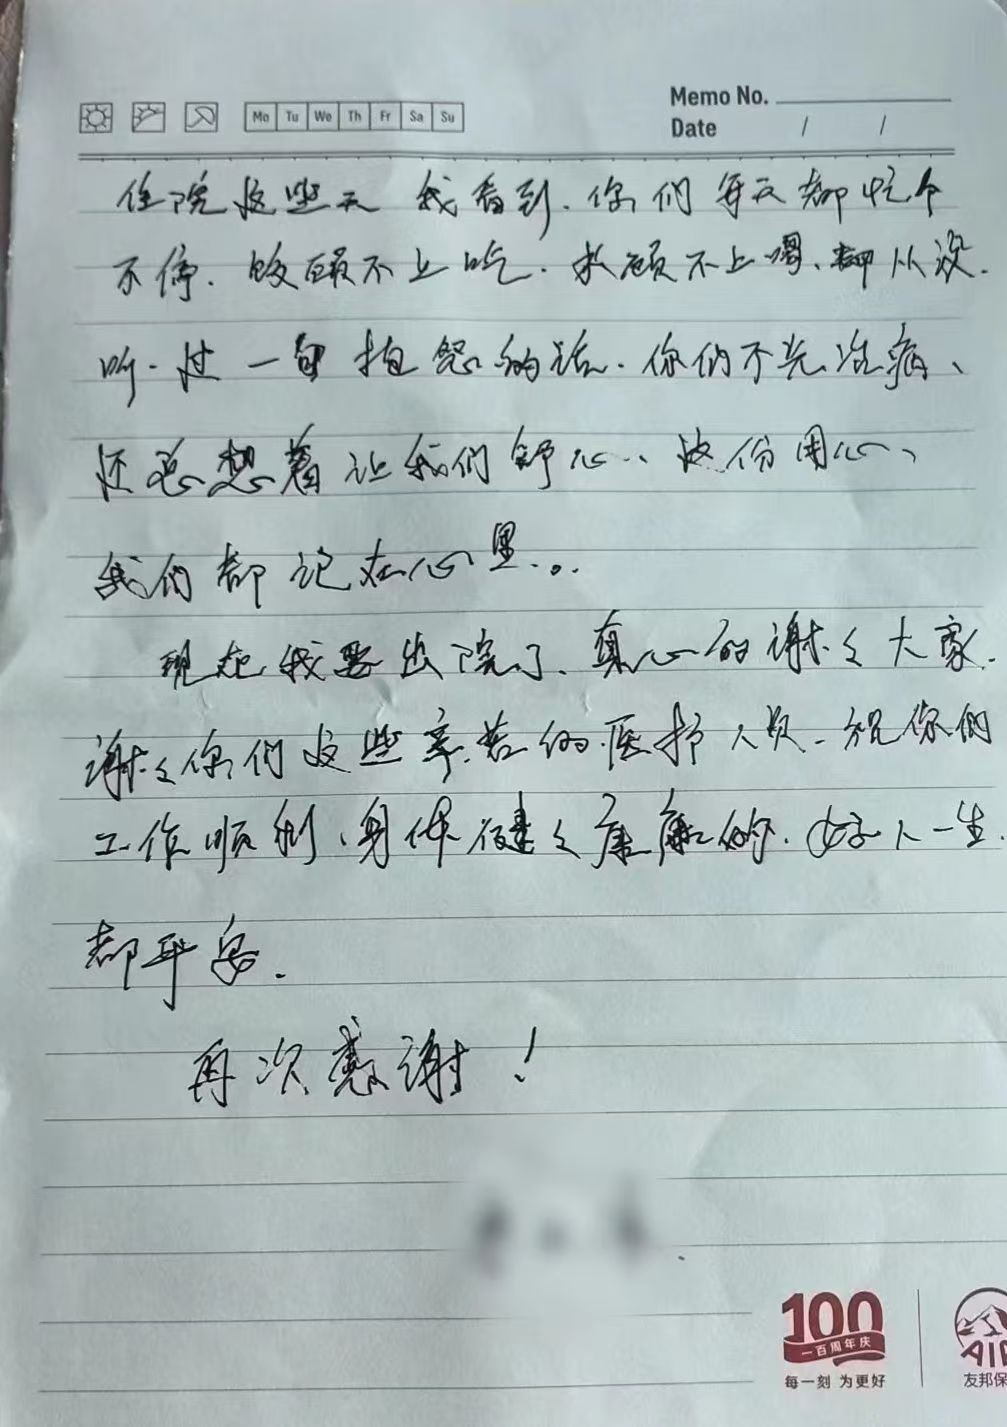 Memo No.
Mo Tu We Th Fr Sa Su
Date / /
住院这些天 我看到.你们每天都忙个
不停.饭顾不上吃.水顾不上喝、却从没.
听.过一句抱怨的话.你们不光治病、
还总想着让我们舒心、这份用心、
我们都记在心里..。
现在我要出院了.真心的谢谢大家.
谢谢你们这些辛苦的医护人员.祝你们
工作顺利、身体健健康康的.好人一生.
都平安.
再次感谢!
100
一百周年庆
每一刻 为更好
AI
友邦保